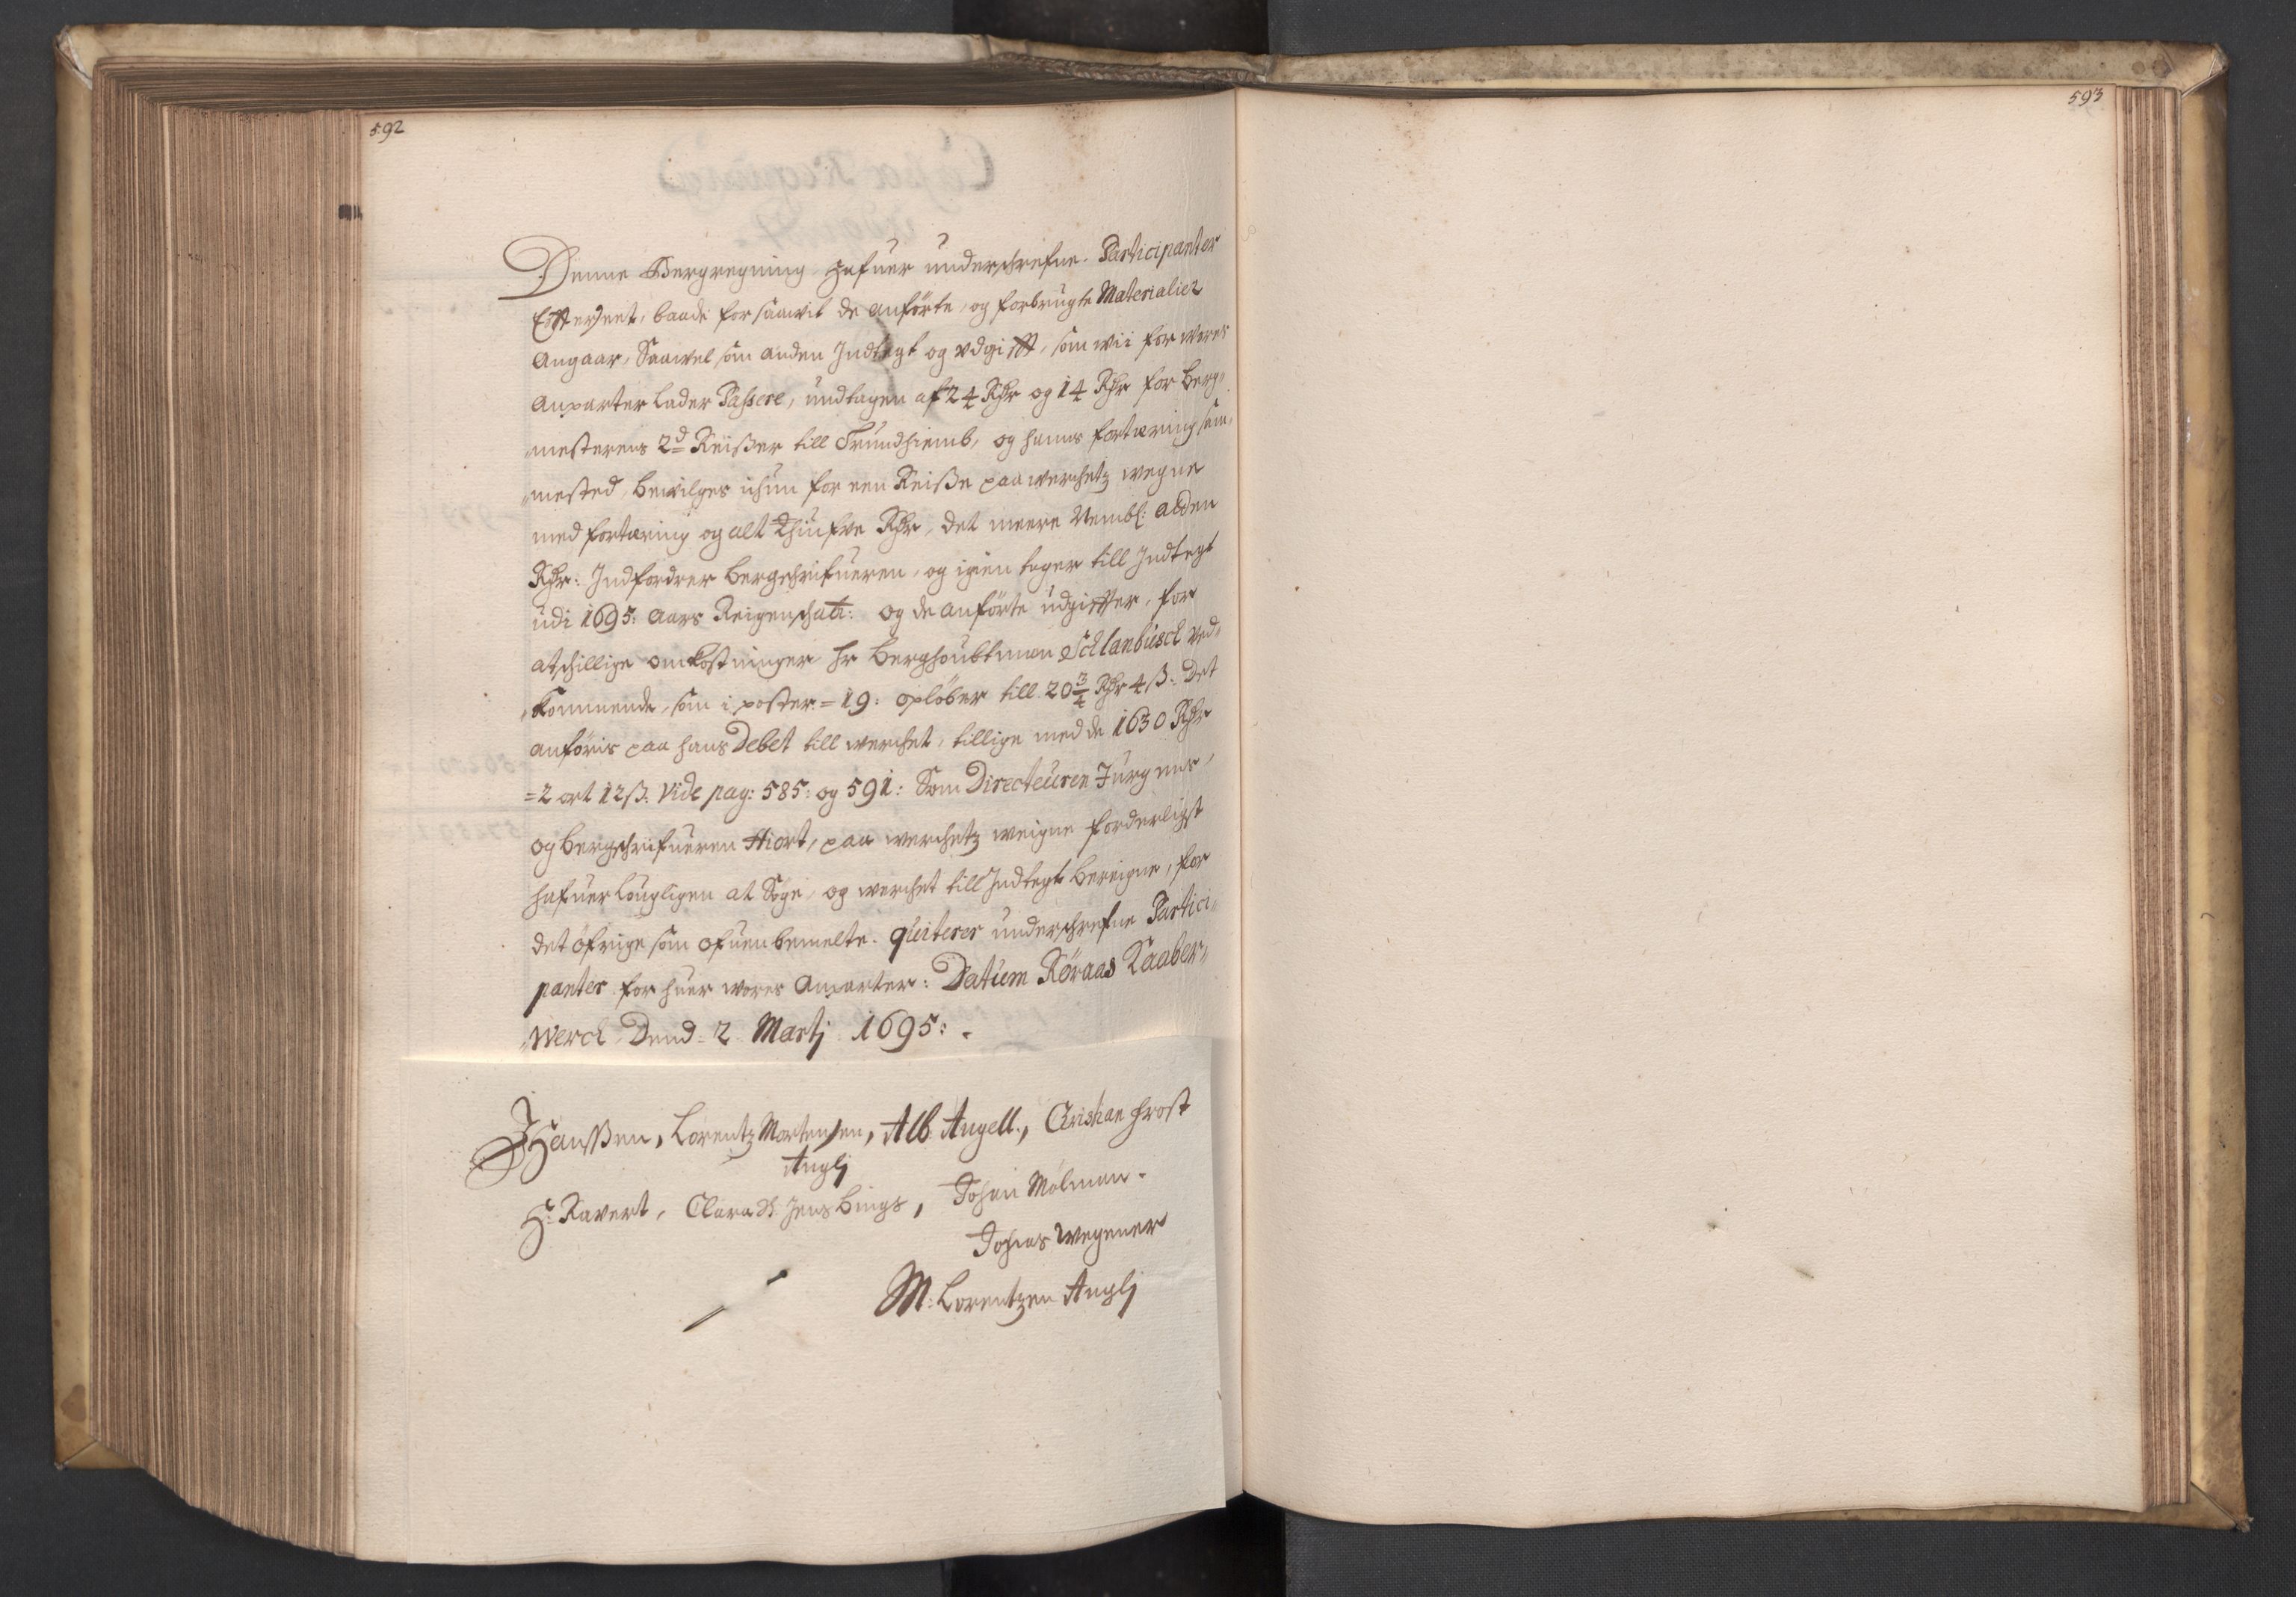 592
593
Denne Bergregning hafuer underschrefne Participanter
Effterseet, baade forsaawit de anförte, og forbrugte Materialier
Angaar, Saawel som anden Indtegt og vdgifft, som wii for wores
Anparter lader Passere, undtagen af 24 Rdr og 14 Rdr for Berg„
„mesterens 2d Reiszer till Trundhiemb, og hanns fortæring sam„
„mested, bewilges ichun for een Reisze paa werchetz wegne
med fortæring og alt Thiufve Rdr, det meere Nembl: atden
Rdr: Indfordrer bergschrifueren, og igien tager till Indtegt
udi 1695: Aars Reigenschab: og de anförte udgiffter, for
atschillige omkostninger Hr Berghoubtman Schlanbusch ved„
„kommende, som i poster =19: oplöber till 20 3/4 Rdr 4 ß: Det
anföris paa hans Debet till werchet, tillige med de 1630 Rdr
=2 ort 12 ß: Vide pag: 585: og 591: Som Directeuren Jürgens,
og bergschrifueren Hiort, paa werchetz weigne forderligst
hafuer lougligen at Söge, og werchet till Indtegt bereigne, for
det öfrige som ofuenbemelte. quiterer underschrefne Partici„
panter for huer wores Anparter: Datum Röraas Kaaber„
„Werck Dend 2 Martj 1695:
JHanssen, Lorentz Mortensen, Alb: Angell., Christian Frost
Anglj
H: Kavert, Clara Sl Jens Bings, Johan Mölman.
Tohias Wegener
M: Lorentzen Anglj